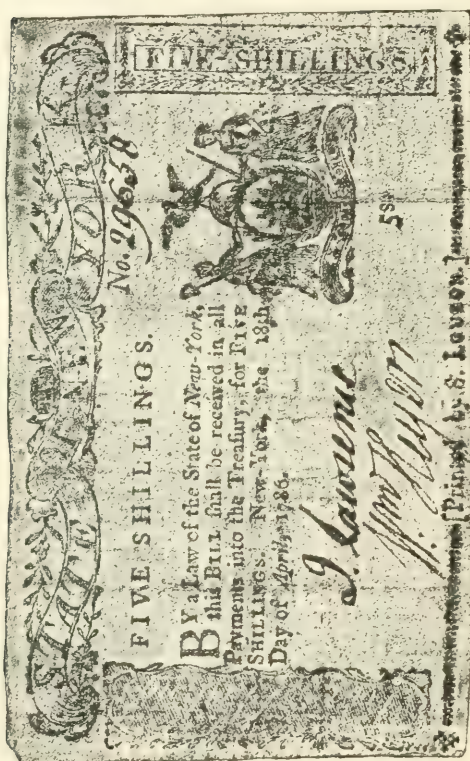 STATE OF NEW YORK
No. 29638
FIVE SHILLINGS.
FIVE-SHILLINGS.
BY a Law of the State of New-York,
this BILL ſhall be received in all
Payments into the Treaſury, for FIVE
SHILLINGS. New-York, the 18th
Day of April, 1786.
5 Sh
J. Lawrence
Wm Heyer
[Printed by S. Loudon.]